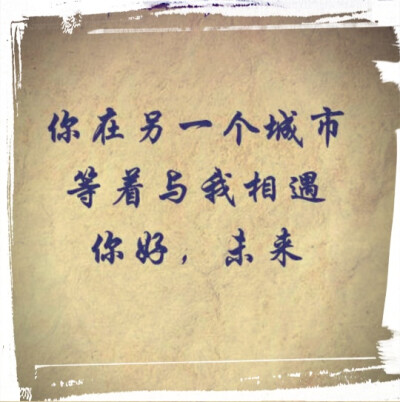 你在另一个城市
等着与我相遇
你好，未来